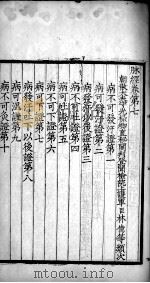 脉經卷第七
朝散大夫守光祿卿直秘閣判登聞檢院上護軍臣林億等類次
病不可發汗證第一
病可發汗證第二
病發汗以後證第三
病不可吐證第四
病可吐證第五
病不可下證第六
病可下證第七
病發汗吐下以後證第八
病可溫證第九
病不可灸證第十
www.docsriver.com